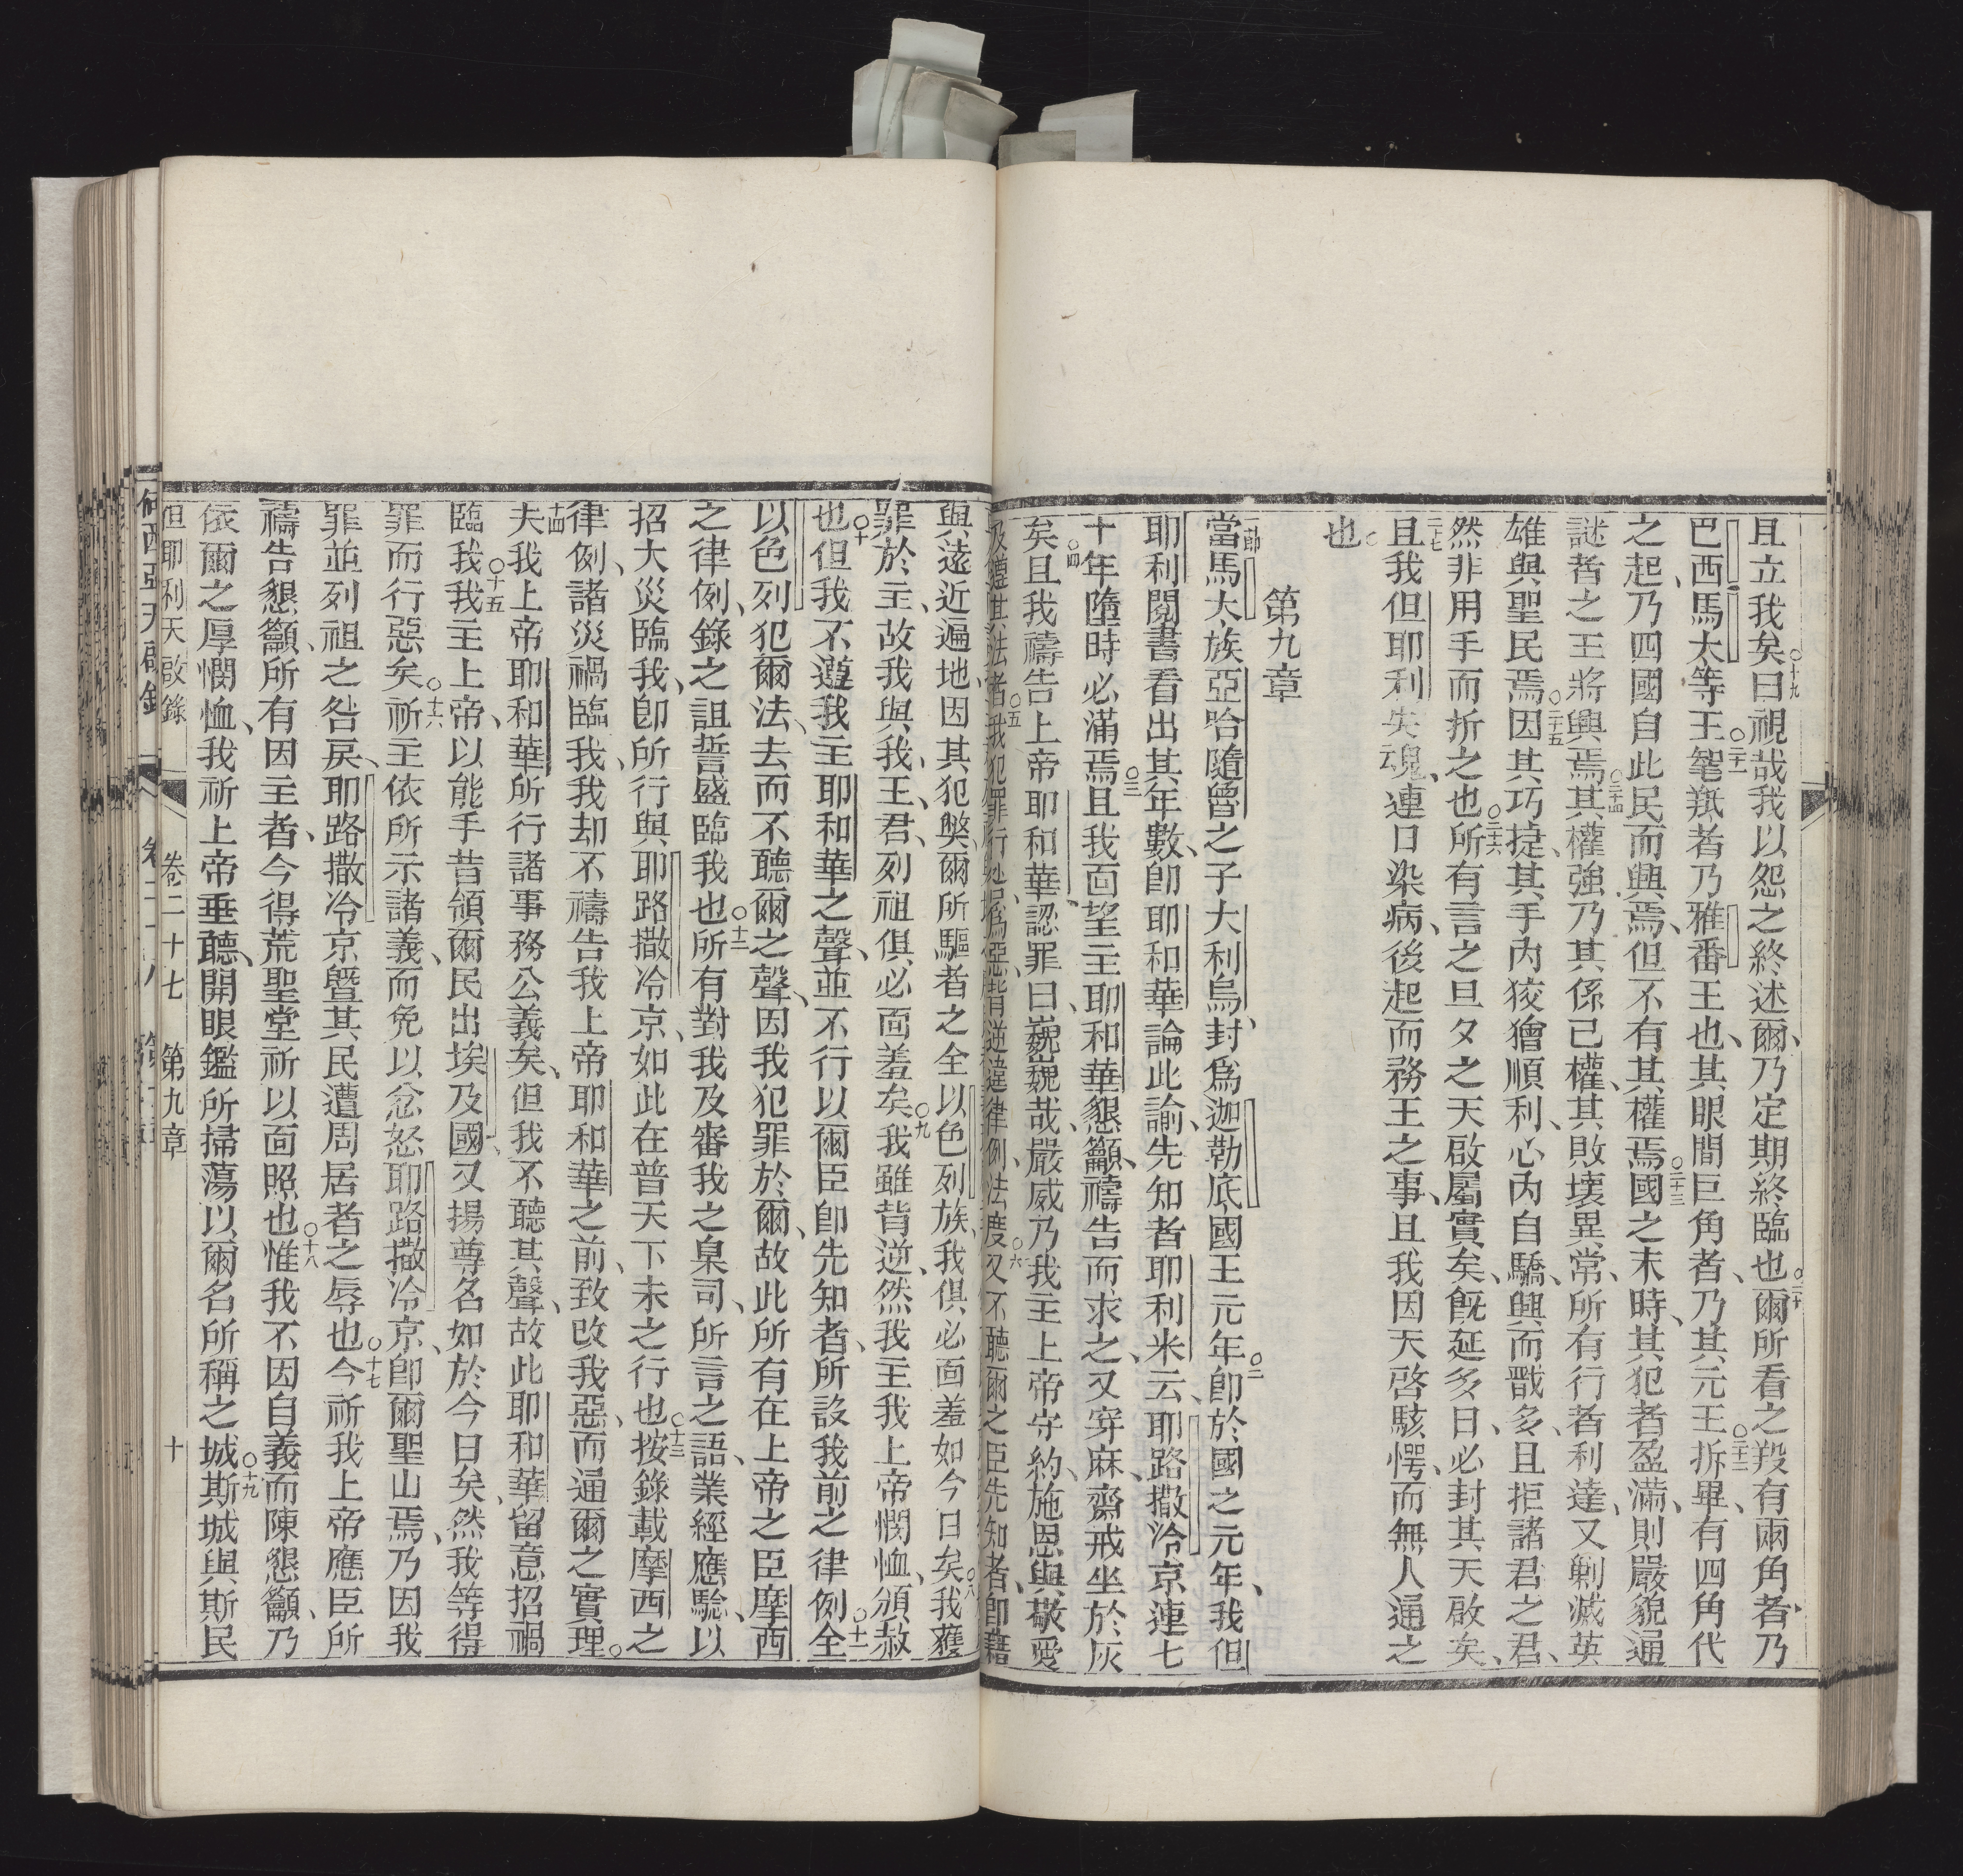 且立我矣○十九曰視哉我以怨之終述爾、乃定期終臨也○二十爾所看之羖有兩角者、乃
巴西馬大等王○二十一毣羝者乃雅番王也、其眼間巨角者、乃其元王○二十二拆畢、有四角代
之起、乃四國自此民而興焉、但不有其權焉○二十三國之末時、其犯者盈滿、則嚴貌通
謎者之王將興焉○二十四其權強乃其係己權、其敗壞異常、所有行者利達、又剿滅英
雄與聖民焉○二十五因其巧捷、其手內狡獪順利、心內自驕、興而戮多、且拒諸君之君、
然非用手而折之也○二十六所有言之旦夕之天啟屬實矣、旣延多日、必封其天啟矣、
二十七且我但耶利失魂、連日染病、後起而務王之事、且我因天啓駭愕、而無人通之
也○
第九章
一節當馬大族亞哈隨魯之子大利烏、封爲迦勒底國王元年○二卽於國之元年、我但
耶利閱書看出其年數、卽耶和華論此諭、先知者耶利米云、耶路撒冷京連七
十年墮時必滿焉○三且我面望主耶和華懇籲、禱告而求之、又穿麻、齋戒坐於灰
矣○四且我禱告上帝耶和華、認罪曰、巍巍哉、嚴威乃我主上帝守約、施恩與敬愛
及遵其法者○五我犯罪行妙爲惡、背逆違律例、法度○六又不聽爾之臣先知者、卽藉
與遠近遍地、因其犯獘爾所驅者之全以色列族、我俱必面羞如今日矣○八我獲
罪於主、故我與我王、君、列祖俱必面羞矣○九我雖背逆、然我主我上帝憫恤、頒赦
也○十但我不遵我主耶和華之聲、並不行以爾臣卽先知者、所設我前之律例○十一全
以色列犯爾法、去而不聽爾之聲、因我犯罪於爾、故此所有在上帝之臣摩西
之律例、錄之詛誓盛臨我也○十二所有對我及審我之臬司、所言之語、業經應驗、以
招大災臨我、卽所行與耶路撒冷京、如此在普天下未之行也○十三按錄載摩西之
律例、諸災禍臨我、我却不禱告我上帝耶和華之前、致改我惡、而通爾之實理○
十四夫我上帝耶和華所行諸事務公義矣、但我不聽其聲、故此耶和華留意招禍
臨我○十五我主上帝、以能手昔領爾民出埃及國、又揚尊名如於今日矣、然我等得
罪而行惡矣○十六祈主依所示諸義、而免以忿怒耶路撒冷京、卽爾聖山焉、乃因我
罪並列祖之咎戾、耶路撒冷京曁其民遭周居者之辱也○十七今祈我上帝應臣所
禱告懇籲、所有因主者、今得荒聖堂祈以面照也○十八惟我不因自義而陳懇籲、乃
依爾之厚憫恤、我祈上帝垂聽、開眼鑑所掃蕩以爾名所稱之城○十九斯城與斯民
但耶利天啟錄 卷二十七 第九章 十